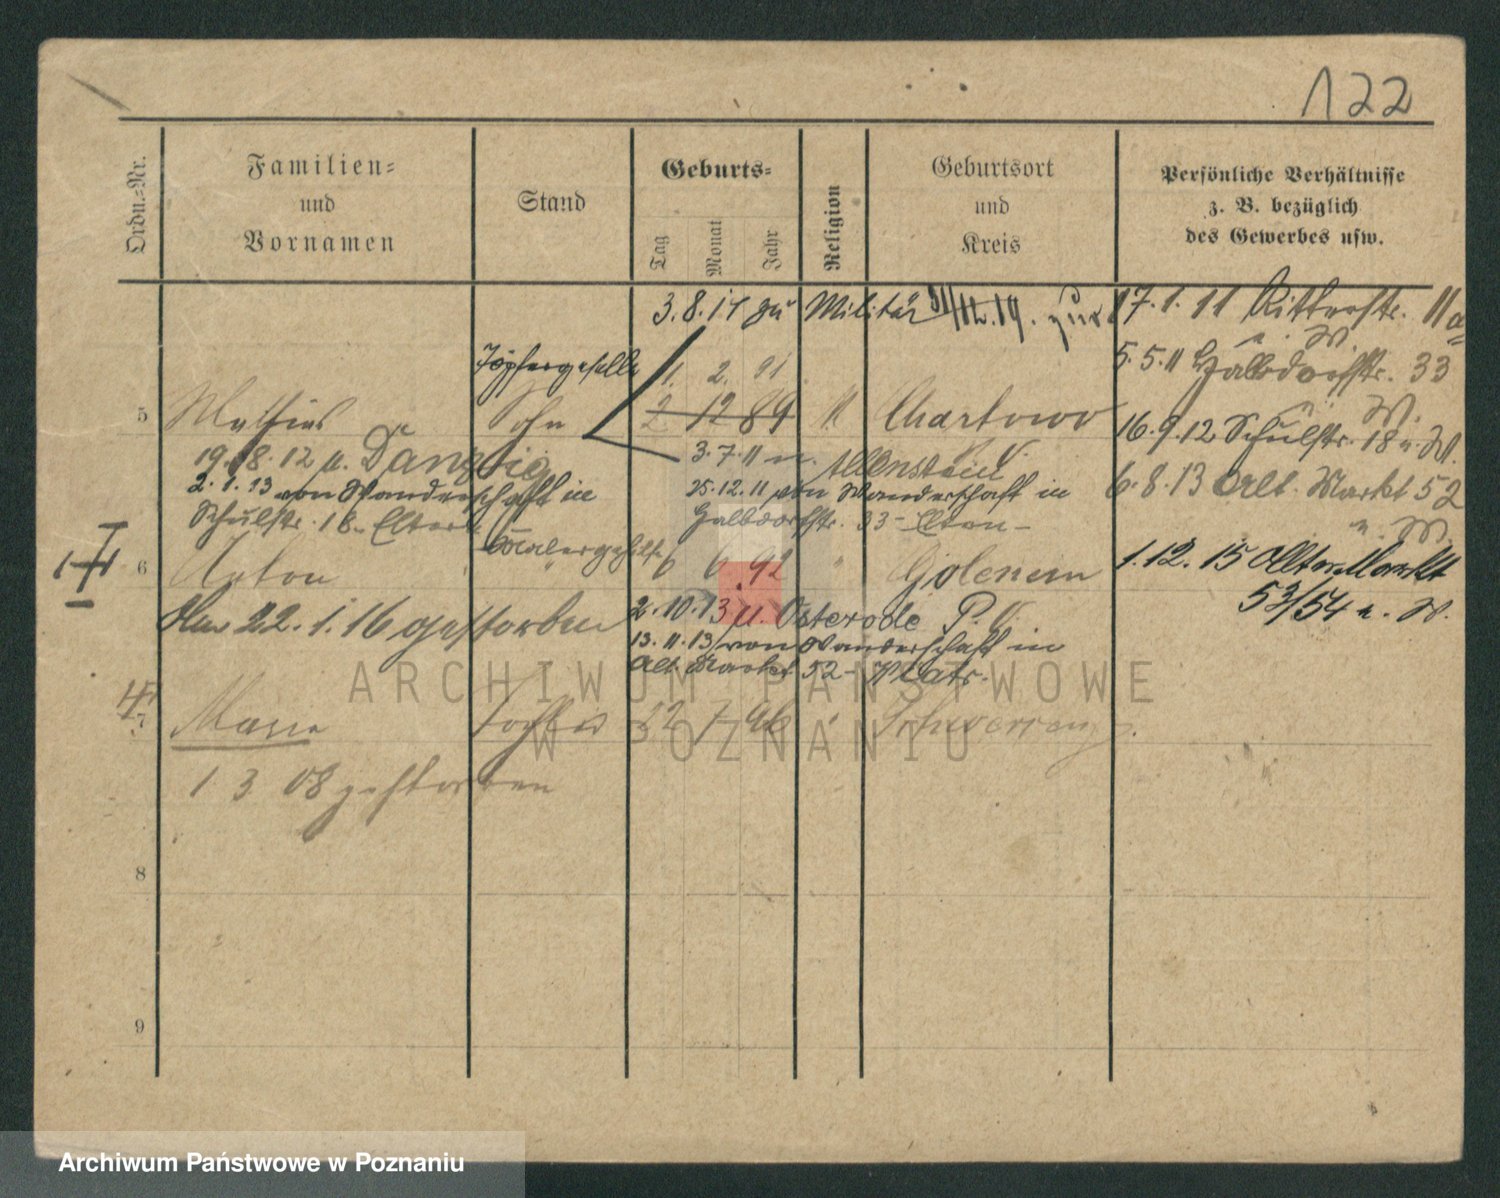 122
Ordn.-Nr.
Familien-
und
Vornamen
Stand
Geburts-
Tag
Monat
Jahr
Religion
Geburtsort
und
Kreis
Persönliche Verhältnisse
z. B. bezüglich
des Gewerbes usw.
3.8.17 zu Militär 31/12.19. zur
17.1.11 Ritterstr. 11a
u. W.
5.5.11 Halbdorfstr. 33
u. W.
16.9.12 Schulstr. 18 u. W.
6.8.13 Alt. Markt 52
u. W.
1.12.15 Alter Markt
53/54 u. W.
Töpfergeselle
11. 2. 91
5
Sohn
2 12 89
Chartowo
19.8.12 n. Danzig
3.7.11 n. Allenstein P. V.
2.1.13 von Wanderschaft in
Schulstr. 18 - Eltern
25.12.11 von Wanderschaft in
Halbdorfstr. 33 - Eltern -
6
Anton
Malergehilfe
6 6 92
"
Golencin
Am 22.1.16 gestorben
2.10.13 n. Osterode P. V.
13.11.13 von Wanderschaft in
Alt. Markt 52 -
7
Marie
Tochter
22 7 96
"
Schwersenz.
1 3 08 gestorben
8
9
ARCHIWUM PAŃSTWOWE
W POZNANIU
Archiwum Państwowe w Poznaniu